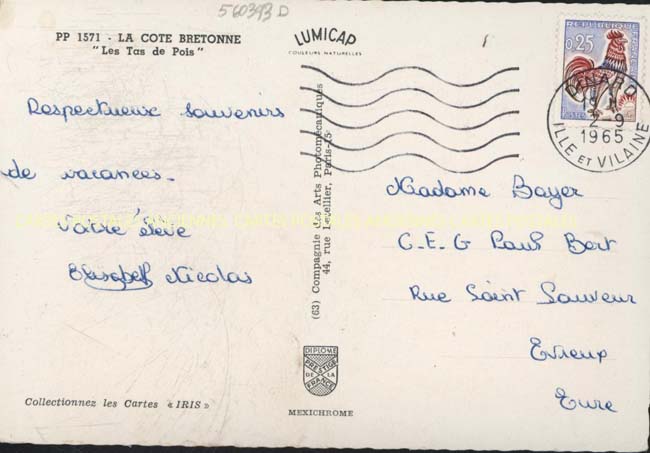 560393 D
PP 1571 - LA COTE BRETONNE
"Les Tas de Pois"
LUMICAP
COULEURS NATURELLES
REPUBLIQUE FRANÇAISE
0,25
POSTES
DINARD
2-9
1965
ILLE ET VILAINE
Respectueux souvenirs
de vacances.
Votre élève
Elisabeth Nicolas
(63) Compagnie des Arts Photomécaniques
44, rue Letellier, Paris-15e
Madame Bayer
C-E-G Paul Bert
Rue Saint Sauveur
Evreux
Eure
DIPLOME
PRESTIGE
DE LA
FRANCE
Collectionnez les Cartes « IRIS »
MEXICHROME